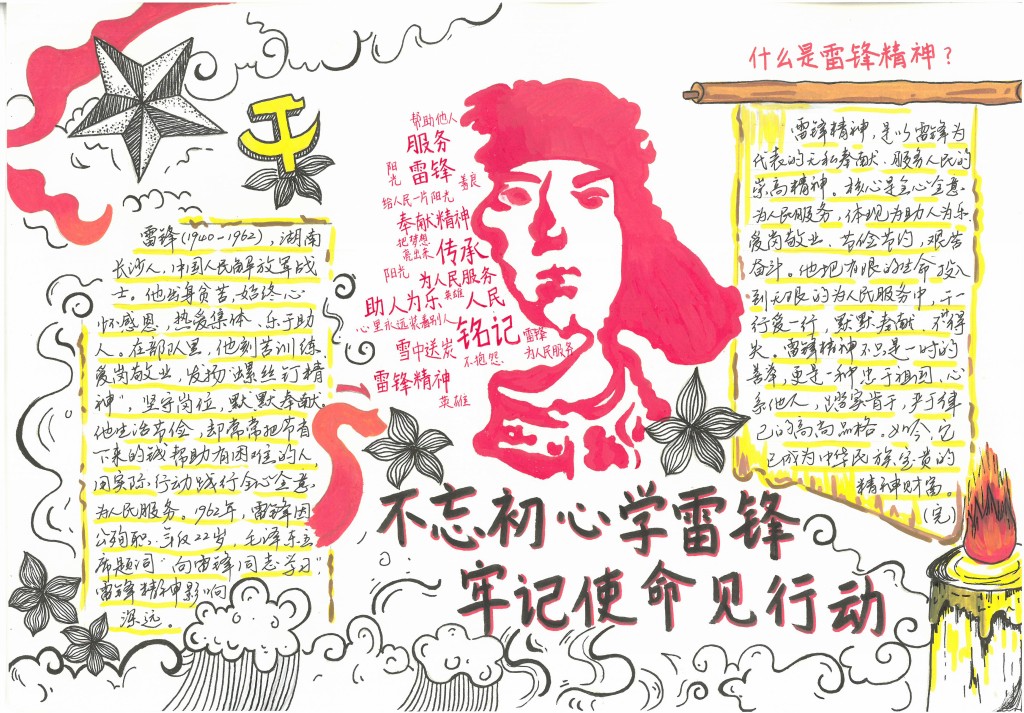 什么是雷锋精神？
帮助他人
服务
阳光
雷锋
善良
给人民一片阳光
奉献精神
把梦想
亮出来
传承
阳光
为人民服务
助人为乐
英雄
人民
心里永远装着别人
铭记
雷锋
雪中送炭
不抱怨
为人民服务
雷锋精神
英雄
雷锋(1940-1962)，湖南
长沙人，中国人民解放军战
士。他出身贫苦，始终心
怀感恩，热爱集体、乐于助
人。在部队里，他刻苦训练、
爱岗敬业，发扬“螺丝钉精
神”，坚守岗位，默默奉献。
他生活节俭，却常常把节省
下来的钱帮助有困难的人，
用实际行动践行全心全意
为人民服务。1962年，雷锋因
公殉职，年仅22岁，毛泽东主
席题词“向雷锋同志学习”，
雷锋精神影响
深远。
雷锋精神，是以雷锋为
代表的无私奉献、服务人民的
崇高精神。核心是全心全意
为人民服务，体现为助人为乐、
爱岗敬业、节俭节约，艰苦
奋斗。他把有限的生命投入
到无限的为人民服务中，干一
行爱一行，默默奉献，不计得
失。雷锋精神不只是一时的
善举，更是一种忠于祖国，心
系他人，踏实肯干，严于律
己的高尚品格。如今，它
已成为中华民族宝贵的
精神财富。
(完)
不忘初心学雷锋
牢记使命见行动